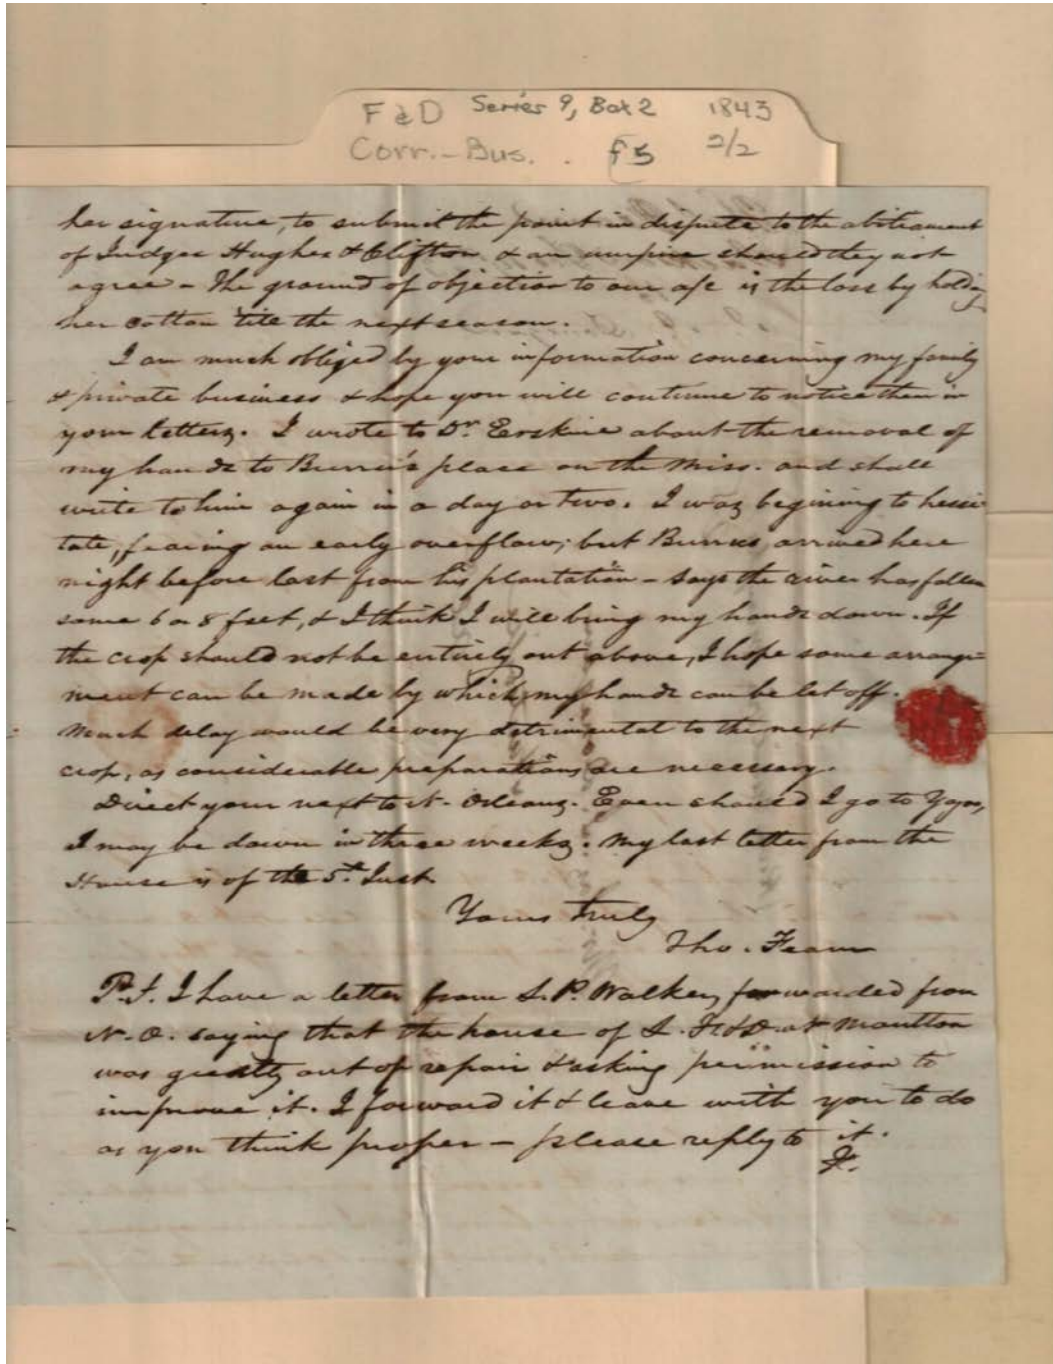 F & D Series 9, Box 2 1843
Corr.-Bus. . f5 2/2
her signature, to submit the point in dispute to the abitrament
of Judges Hughes & Clifton & an umpire should they not
agree - The ground of objection to our a/c is the loss by holding
her cotton 'till the next season.
I am much obliged by your information concerning my family
& private business & hope you will continue to notice them in
your letters. I wrote to Dr. Erskine about the removal of
my hands to Burrus's place on the Miss. and shall
write to him again in a day or two. I was begining to hessi
tate, fearing an early overflow; but Burrus arrived here
night before last from his plantation - says the river has fallen
some 6 or 8 feet, & I think I will bring my hands down. If
the crop should not be entirely out above, I hope some arrange=
ment can be made by which my hands can be let off.
Much delay would be very detrimental to the next
crop, as considerable preparations are necessary.
Direct your next to N. Orleans. Even should I go to Yazoo,
I may be down in three weeks. My last letter from the
House is of the 5th Inst.
Yours truly
Tho. Fearn
P.S. I have a letter from L. P. Walker, forwarded from
N. O. saying that the house of F & D at Moulton
was greatly out of repair & asking permission to
improve it. I forward it & leave with you to do
as you think proper - please reply to it.
F.